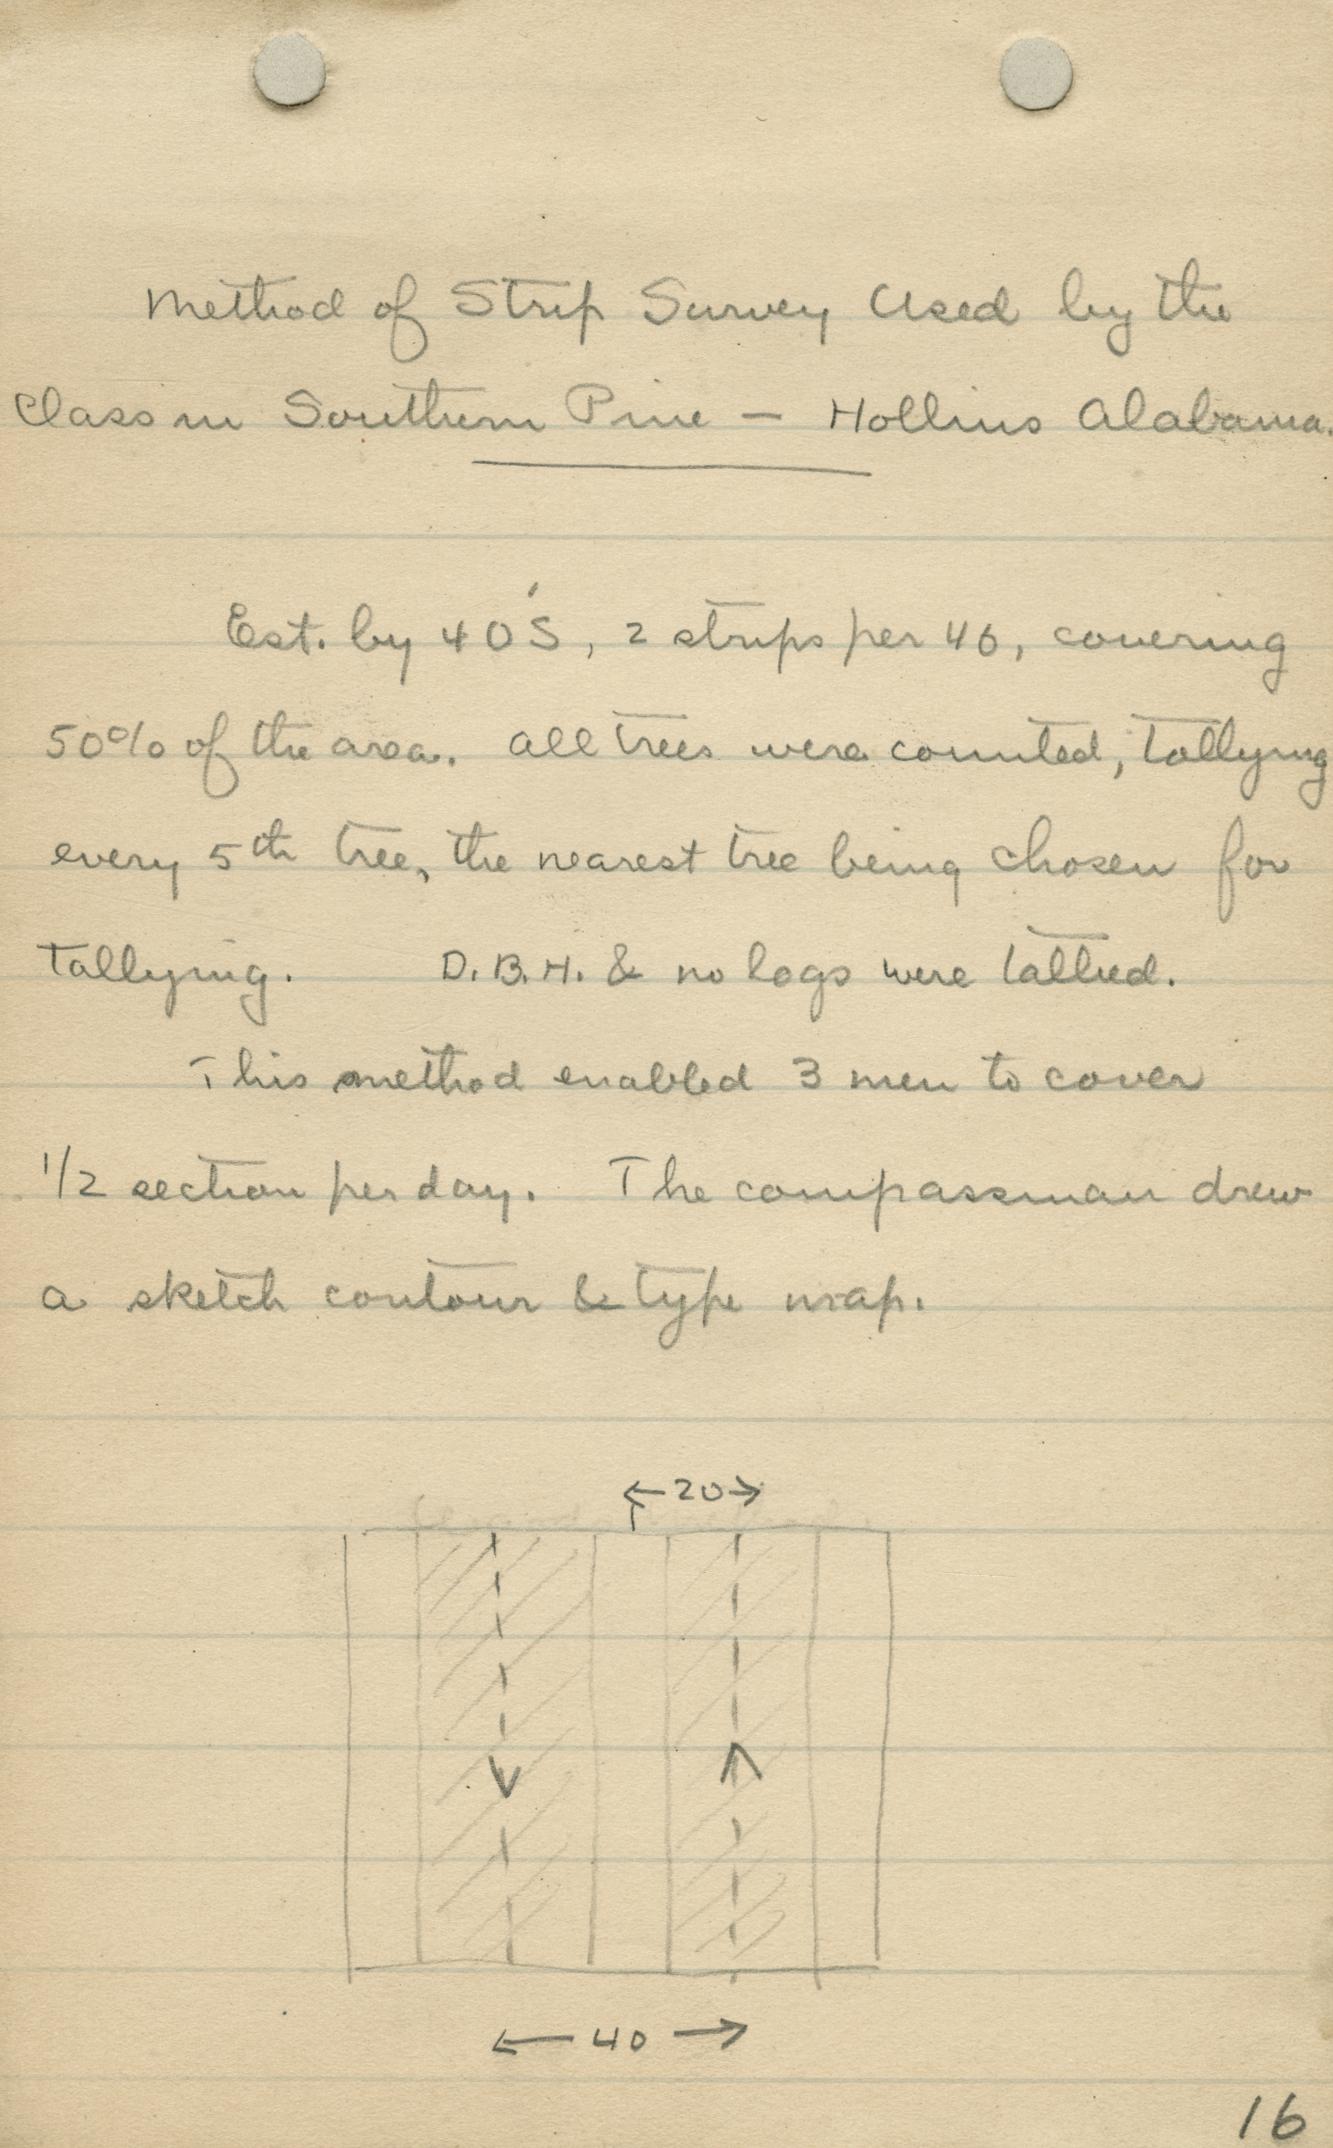 Method of Strip Survey Used by the
Class in Southern Pine — Hollins Alabama.
Est. by 40'S, 2 strips per 40, covering
50% of the area. All trees were counted, tallying
every 5th tree, the nearest tree being chosen for
tallying. D.B.H. & no logs were tallied.
This method enabled 3 men to cover
1/2 section per day. The compassman drew
a sketch contour & type map.
←20→
← 40 →
16